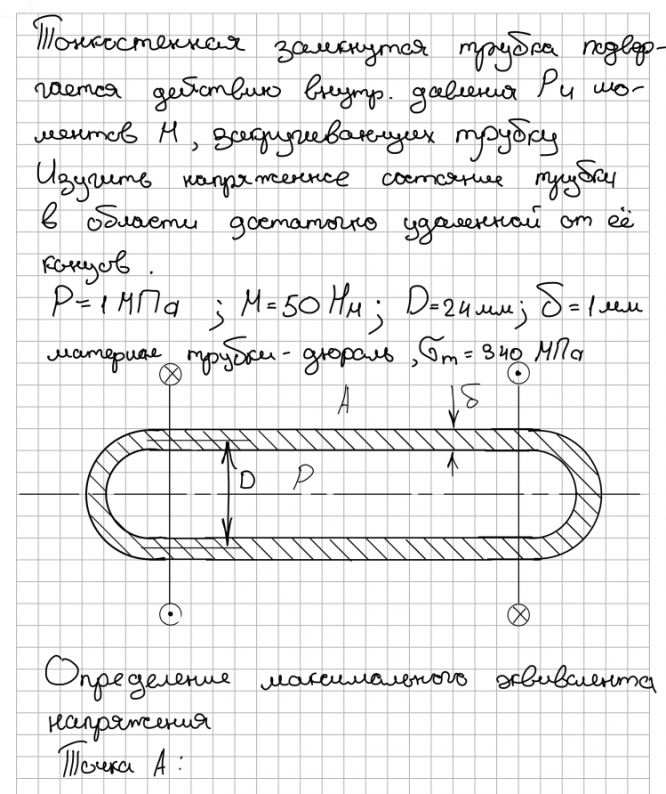 Тонкостенная замкнутся трубка подвер-
гается действию внутр. давления P и мо-
ментов M, закручивающих трубку
Изучить напряженное состояние трубки
в области достаточно удаленной от её
концов.
P=1МПа ; M=50 Нм; D=24мм; δ=1мм
материал трубки - дюраль, σт=340 МПа
A δ
D P
Определение максимального эквивалента
напряжения
Точка A: